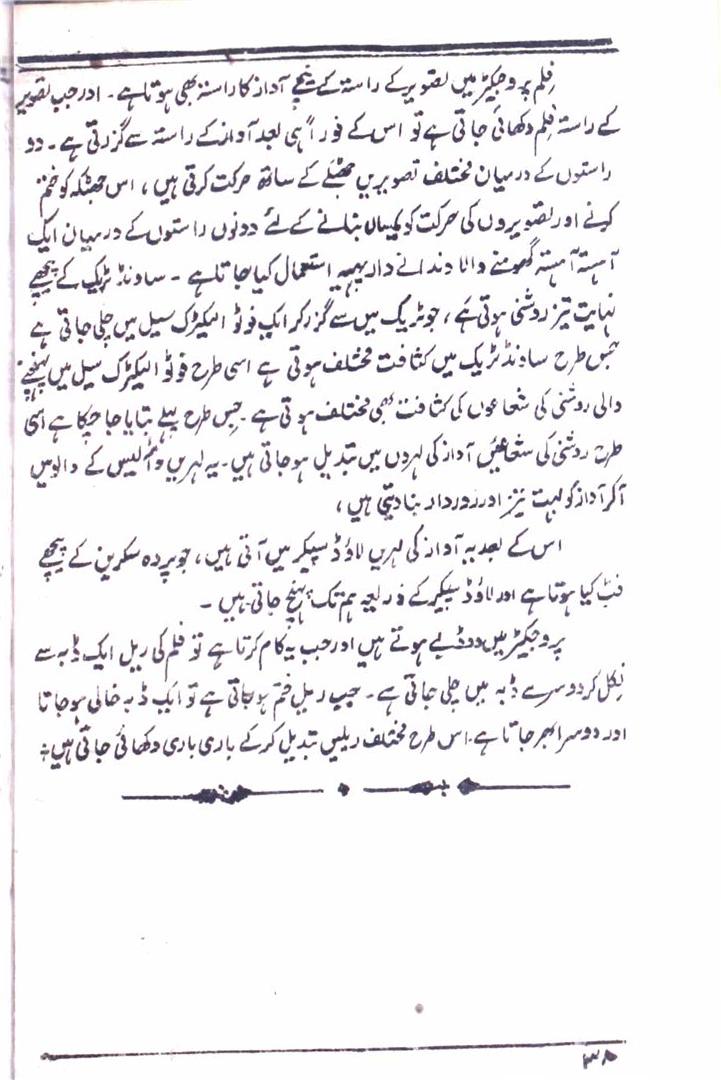 فلم پروجیکٹر میں تصویر کے راستہ کے نیچے آواز کا راستہ بھی ہوتا ہے ۔ اور جب تصویر
کے راستہ فلم دکھائی جاتی ہے تو اس کے فوراً ہی بعد آواز کے راستہ سے گزرتی ہے ۔ دو
راستوں کے درمیان مختلف تصویریں جھٹکے کے ساتھ حرکت کرتی ہیں ، اس جھٹکہ کو ختم
کرنے اور تصویروں کی حرکت کو یکساں بنانے کے لئے دونوں راستوں کے درمیان ایک
آہستہ آہستہ گھومنے والا دندانے دار پہیہ استعمال کیا جاتا ہے ۔ ساونڈ ٹریک کے پیچھے
نہایت تیز روشنی ہوتی ہے ، جو ٹریک میں سے گزر کر ایک فوٹو الیکٹرک سیل میں چلی جاتی ہے
جس طرح ساونڈ ٹریک میں کثافت مختلف ہوتی ہے اسی طرح فوٹو الیکٹرک سیل میں پہنچنے
والی روشنی کی شعاعوں کی کثافت بھی مختلف ہوتی ہے ۔ جس طرح پہلے بتایا جا چکا ہے اسی
طرح روشنی کی شعاعیں آواز کی لہروں میں تبدیل ہو جاتی ہیں ۔ یہ لہریں وائرلیس کے والوں میں
آکر آواز کو بہت تیز اور زوردار بنا دیتی ہیں ،
اس کے بعد یہ آواز کی لہریں لاؤڈ سپیکر میں آتی ہیں ، جو پردہ سکرین کے پیچھے
فٹ کیا ہوتا ہے اور لاؤڈ سپیکر کے ذریعہ ہم تک پہنچ جاتی ہیں ۔
پروجیکٹر میں دو ڈبے ہوتے ہیں اور جب یہ کام کرتا ہے تو فلم کی ریل ایک ڈبہ سے
نکل کر دوسرے ڈبہ میں چلی جاتی ہے ۔ جب ریل ختم ہو جاتی ہے تو ایک ڈبہ خالی ہو جاتا
اور دوسرا بھر جاتا ہے ۔ اس طرح مختلف ریلیں تبدیل کر کے باری باری دکھائی جاتی ہیں ؛
۳۸